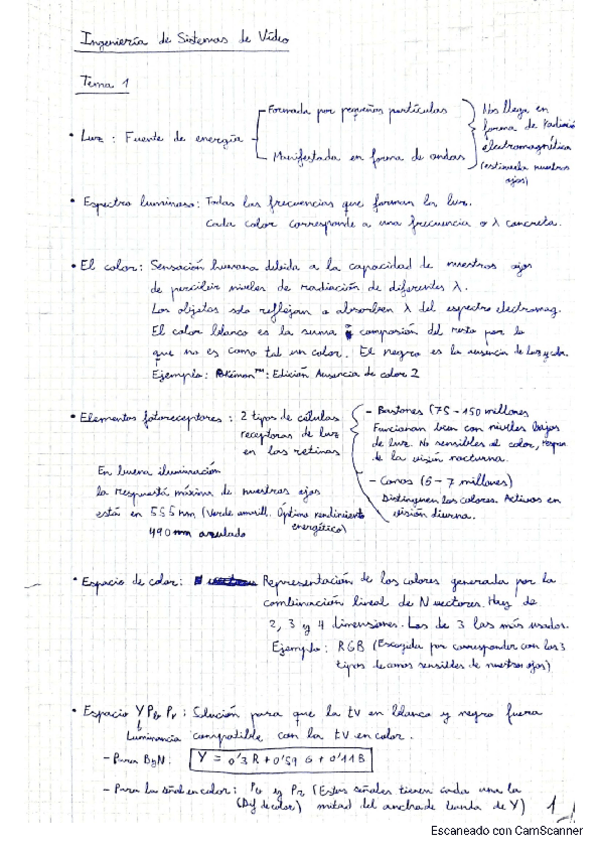 Ingeniería de Sistemas de Vídeo
Tema 1
• Luz: Fuente de energía
Formada por pequeñas partículas
Manifestada en forma de ondas
Nos llega en
forma de radiació
electromagnética
(estimula nuestros
ojos)
• Espectro luminoso: Todas las frecuencias que forman la luz.
Cada color corresponde a una frecuencia o λ concreta.
• El color: Sensación humana debida a la capacidad de nuestros ojos
de percibir niveles de radiación de diferentes λ.
Los objetos solo reflejan o absorben λ del espectro electromag.
El color blanco es la suma composión del resto por lo
que no es como tal un color. El negro es la ausencia de
Ejemplo: Pokémon™: Edición Ausencia de color 2
• Elementos fotoreceptores: 2 tipos de células
receptoras de luz
en las retinas
- Bastones (75 - 150 millones
Funcionan bien con niveles bajos
de luz. No sensibles al color, respon.
de la visión nocturna.
- Conos (6 - 7 millones)
Distinguen los colores. Activos en
visión diurna.
En buena iluminación
la respuesta máxima de nuestros ojos
está en 555 nm (Verde amarill. Óptimo rendimiento
energético)
490 nm azulado
• Espacio de color: Representación de los colores generada por la
combinación lineal de N vectores. Hay de
2, 3 y 4 dimensiones. Los de 3 los más usados.
Ejemplo: RGB (Escogida por corresponder con los 3
tipos de conos sensibles de nuestro ojos)
• Espacio Y Pb Pr: Solución para que la tv en blanco y negro fuera
Luminancia compatible con la tv en color.
- Para ByN: Y = 0'3 R + 0'59 G + 0'11 B
- Para la señal en color: Pb y Pr (Estas señales tienen cada una la
(Dif de color) mitad del ancho de banda de Y)
1
Escaneado con CamScanner